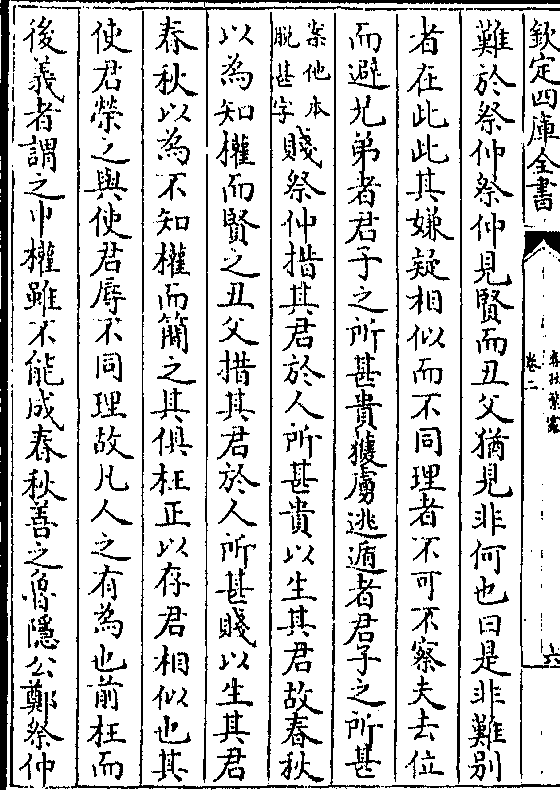 欽定四庫全書
春秋繁露
卷二
六
難於祭仲祭仲見賢而丑父猶見非何也曰是非難別
者在此此其嫌疑相似而不同理者不可不察夫去位
而避兄弟者君子之所甚貴獲虜逃遁者君子之所甚
案他本脫甚字賤祭仲措其君於人所甚貴以生其君故春秋
以為知權而賢之丑父措其君於人所甚賤以生其君
春秋以為不知權而簡之其俱枉正以存君相似也其
使君榮之與使君辱不同理故凡人之有為也前枉而
後義者謂之中權雖不能成春秋善之魯隱公鄭祭仲